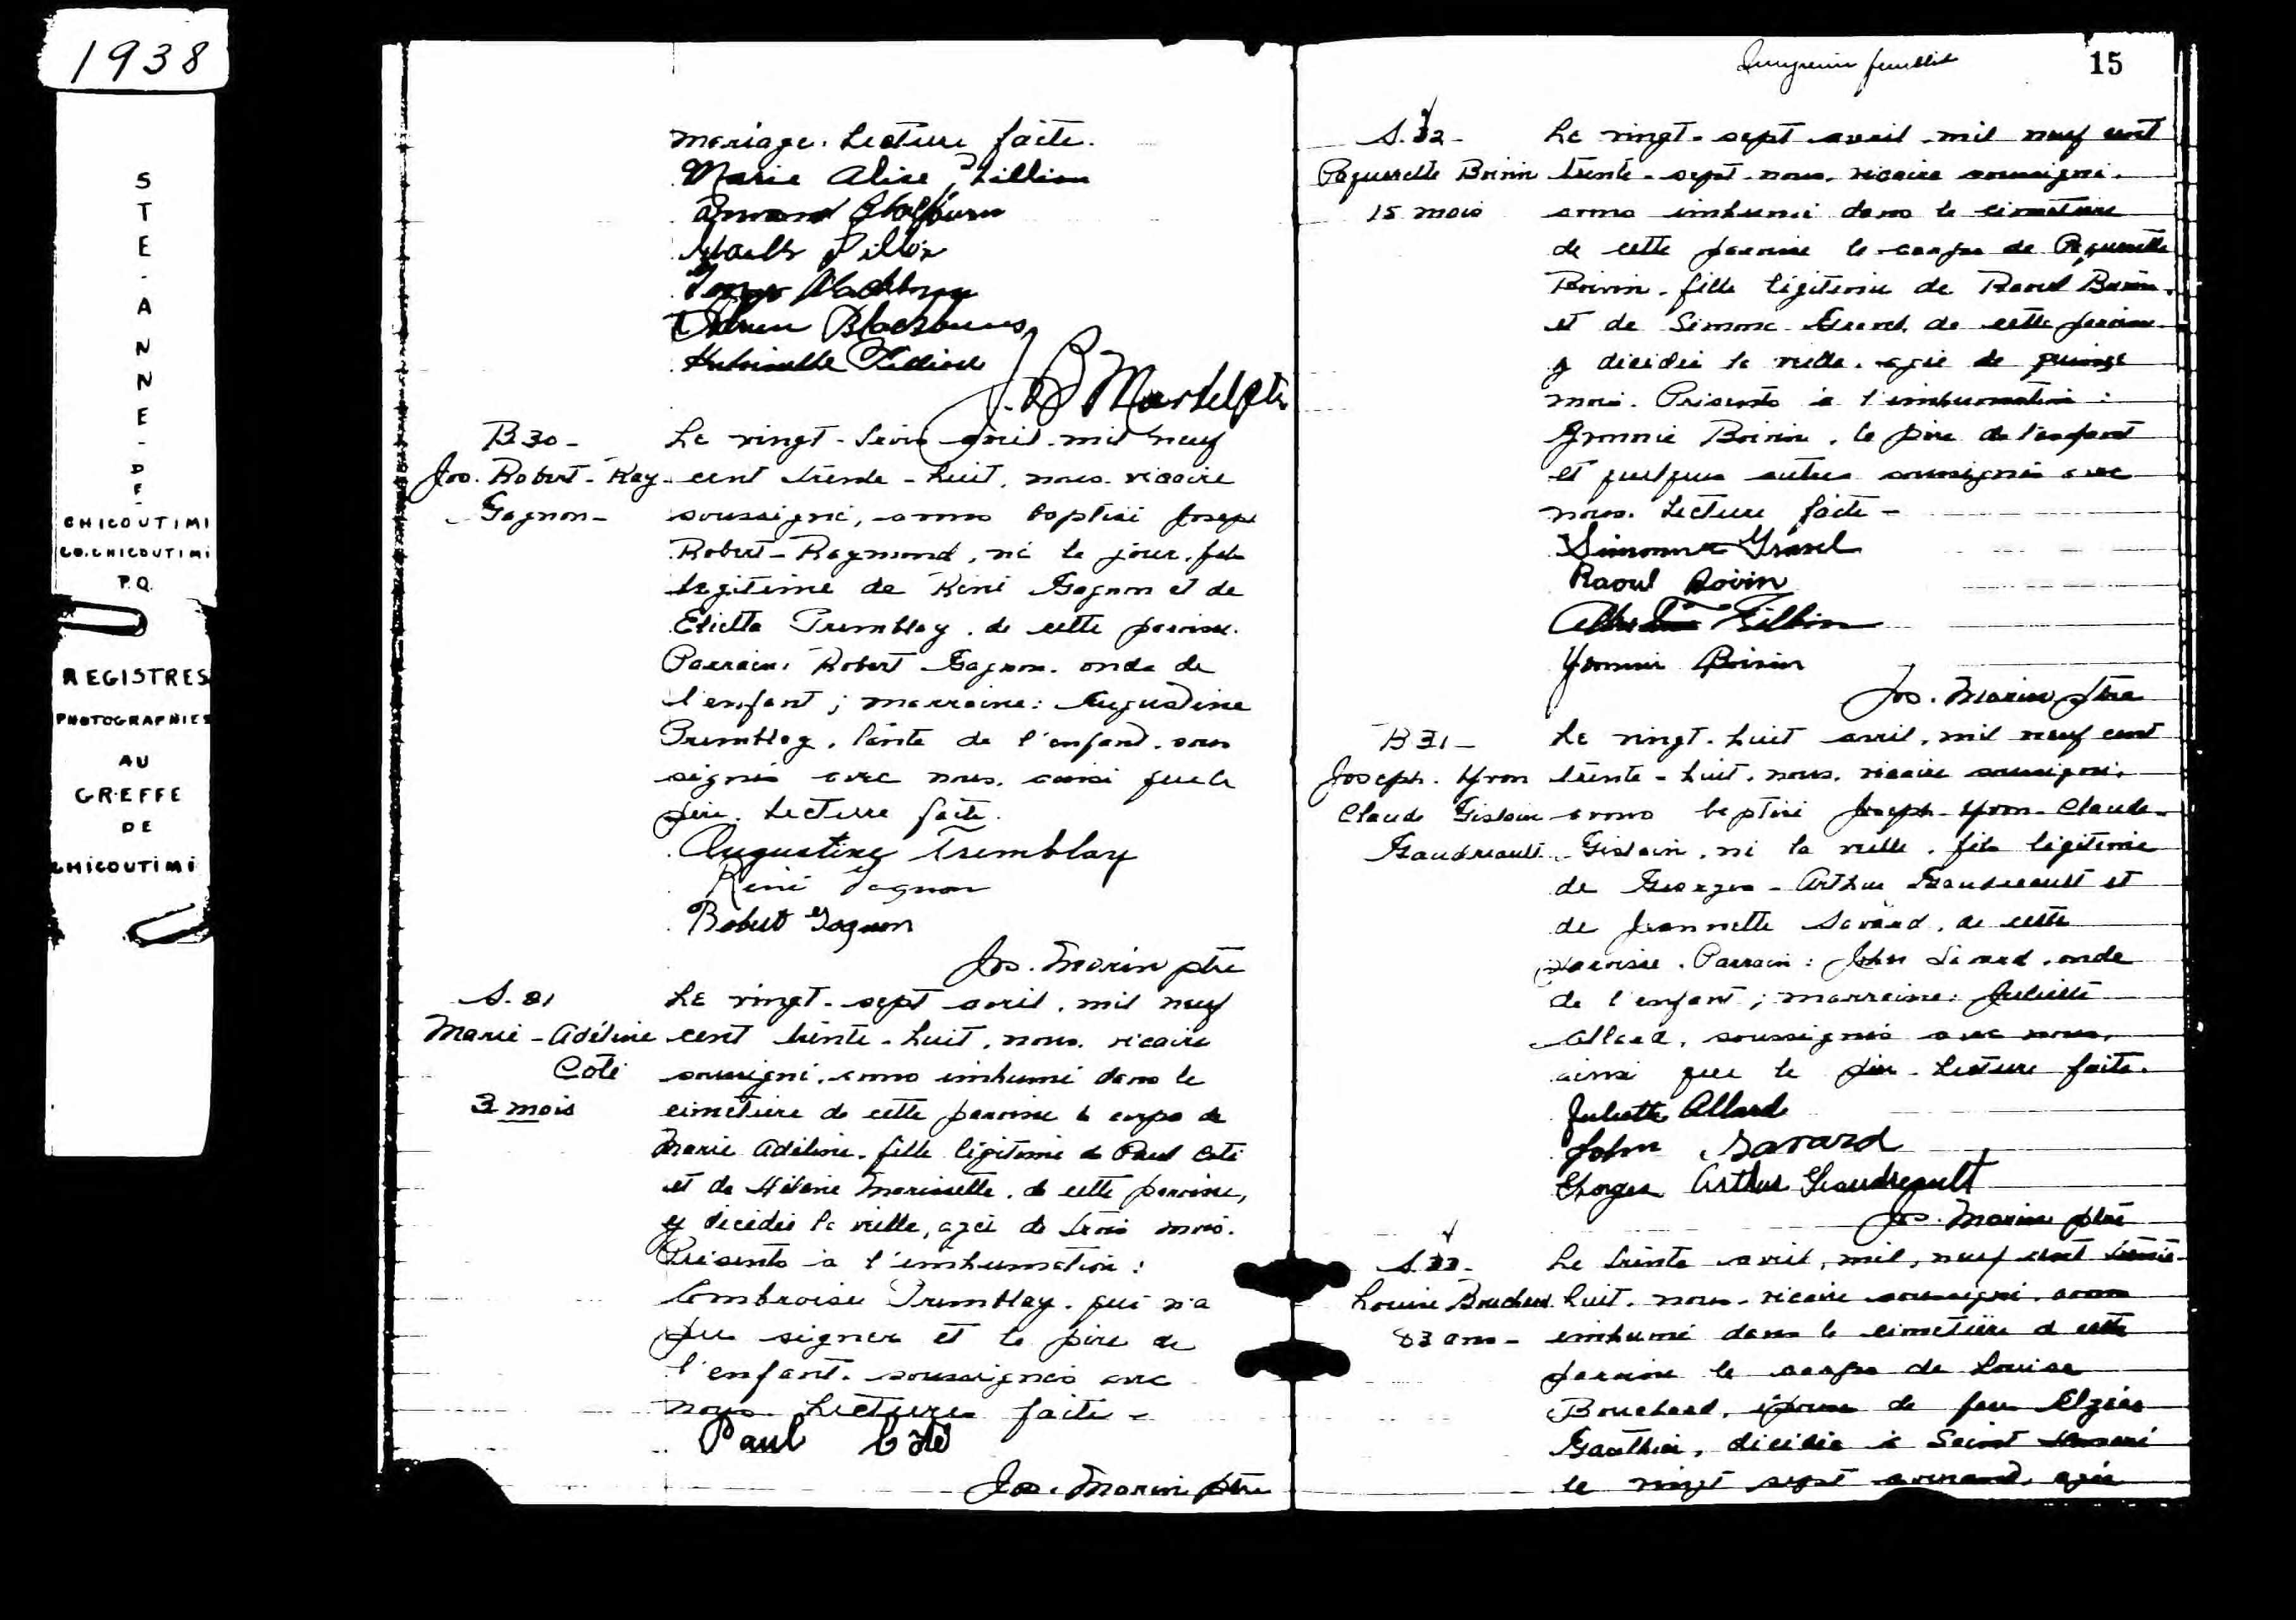 1938
STE-ANNE-DE-
CHICOUTIMI
CO. CHICOUTIMI
P.Q.
REGISTRES
PHOTOGRAPHIES
AU
GREFFE
DE
CHICOUTIMI
mariage. Lecture faite.
Marie Alice Fillion
Armand Blackburn
Fillion
Blackburn
Adrien Blackburn
Antoinette Fillion
J. B. Martel ptre
B 30 -
Jos. Robert-Ray
Gagnon -
Le vingt-trois avril mil neuf
cent trente-huit, nous vicaire
soussigné, avons baptisé Joseph
Robert-Raymond, né le jour, fils
légitime de René Gagnon et de
Tremblay, de cette paroisse.
Parrain: Robert Gagnon, oncle de
l'enfant; marraine: Augustine
Tremblay, tante de l'enfant, sous
signés avec nous, ainsi que le
père. Lecture faite.
Augustine Tremblay
René Gagnon
Robert Gagnon
Jos. Morin ptre
S. 31
Marie-Adéline
Coté
3 mois
Le vingt-sept avril, mil neuf
cent trente-huit, nous, vicaire
soussigné, avons inhumé dans le
cimetière de cette paroisse le corps de
Marie Adéline, fille légitime de Paul Coté
et de Hélène Morissette, de cette paroisse,
y décédée la veille, agée de trois mois.
Présents à l'inhumation:
Ambroise Tremblay, qui n'a
pu signer et le père de
l'enfant, soussignés avec
nous. Lecture faite -
Paul Coté
Jos. Morin ptre
Quinzième feuillet
15
S. 32 -
Paquerette Boivin
15 mois
Le vingt-sept avril, mil neuf cent
trente-sept, nous, vicaire soussigné,
avons inhumé dans le cimetière
de cette paroisse le corps de Paquerette
Boivin, fille légitime de Raoul Boivin,
et de Simone Gravel, de cette paroisse
y décédée la veille, agée de quinze
mois. Présents à l'inhumation:
Boivin, le père de l'enfant
et quelques autres soussignés avec
nous. Lecture faite -
Simonne Gravel
Raoul Boivin
Fillion
Boivin
Jos. Morin ptre
B 31 -
Joseph-Yvon
Claude Gislain
Gaudreault
Le vingt-huit avril, mil neuf cent
trente-huit, nous, vicaire soussigné,
avons baptisé Joseph-Yvon-Claude-
Gislain, né la veille, fils légitime
de Georges-Arthur Gaudreault et
de Jeannette Savard, de cette
paroisse. Parrain: John Savard, oncle
de l'enfant; marraine: Juliette
Allard, soussignés avec nous,
ainsi que le père. Lecture faite.
Juliette Allard
John Savard
Georges Arthur Gaudreault
Jos. Morin ptre
S. 33 -
Louise Bouchard
83 ans -
Le trente avril, mil, neuf cent trente-
huit, nous, vicaire soussigné, avons
inhumé dans le cimetière de cette
paroisse le corps de Louise
Bouchard, épouse de feu Elzéar
Gauthier, décédée à Saint
le vingt sept agée